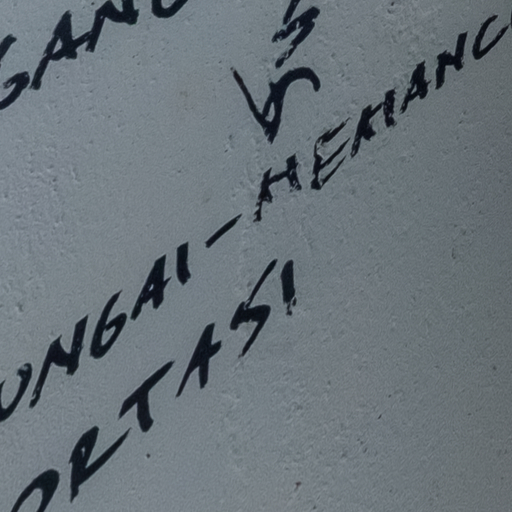 GANG
VS
UNGAI-HEMANC
ORTASI